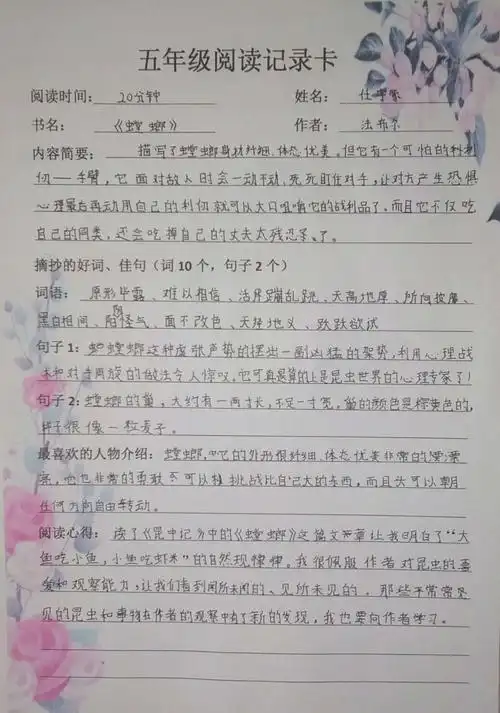 五年级阅读记录卡
阅读时间: 20分钟 姓名: 任
书名: 《螳螂》 作者: 法布尔
内容简要: 描写了螳螂身材纤细、体态优美,但它有一个可怕的利
仞——手臂,它面对敌人时会一动不动,死死盯住对手,让对方产生恐惧
心理最后再动用自己的利仞就可以大口咀嚼它的战利品了、而且它不仅吃
自己的同类,还会吃掉自己的丈夫太残忍了。
摘抄的好词、佳句(词10个,句子2个)
词语: 原形毕露、难以相信、活蹦乱跳、天高地厚、所向披靡、
黑白相间、阴阳怪气、面不改色、天经地义、跃跃欲试
句子1: 螳螂这种虚张声势的摆出一副凶猛的架势,利用心理战
术和对手周旋的做法令人惊叹。它可真是算的上是昆虫世界的心理专家了!
句子2: 螳螂的巢,大约有一两寸长,不足一寸宽,巢的颜色是棕黄色的,
样子很像一粒麦子。
最喜欢的人物介绍: 螳螂,它的外形很纤细、体态优美非常的漂
亮,他也非常的勇敢 可以挑战比自己大的东西,而且头可以朝
任何方向自由转动。
阅读心得: 读了《昆虫记》中的《螳螂》这篇文章让我明白了“大
鱼吃小鱼,小鱼吃虾米”的自然规律。我很佩服作者对昆虫的喜
爱和观察能力,让我们看到闻所未闻的、见所未见的,那些平常常见
见的昆虫和事物在作者的观察中有了新的发现,我也要向作者学习。